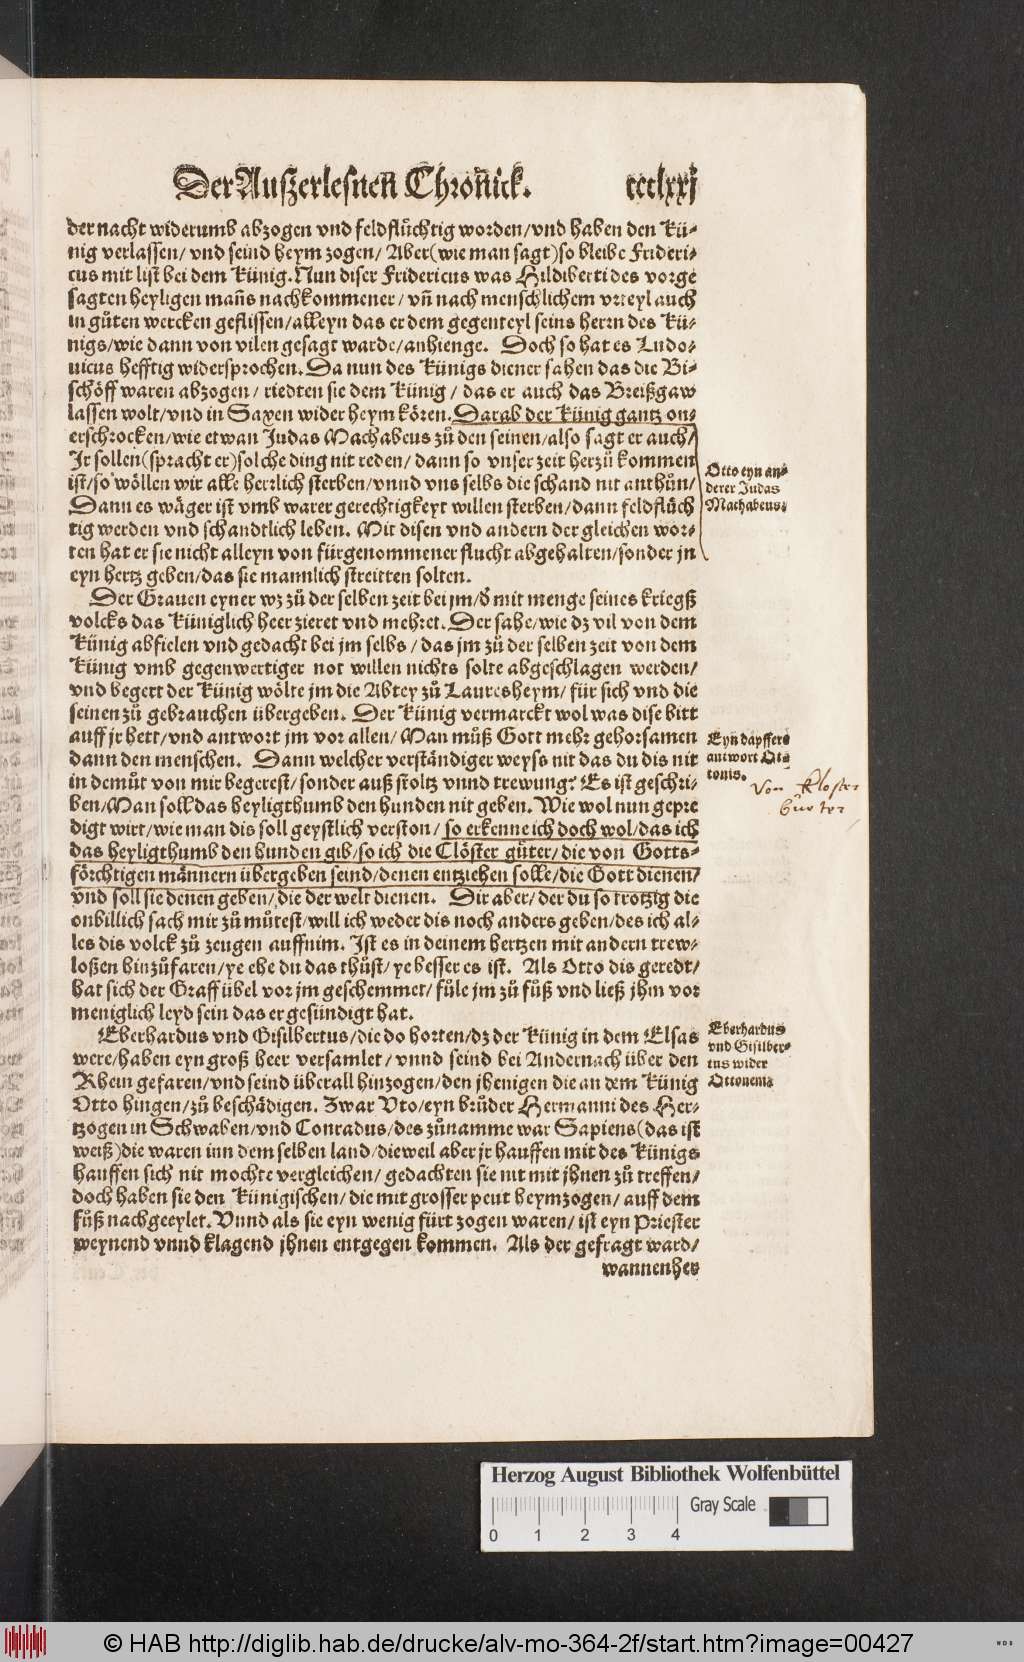 Der Auſzerleſneñ Chroñick. ccclxxj
der nacht widerumb abzogen vnd feldflüchtig worden/vnd haben den Kü-
nig verlaſſen/ vnd ſeind heym zogen/ Aber(wie man ſagt)ſo bleibe Frideri-
cus mit liſt bei dem Künig. Nun diſer Fridericus was Hildiberti des vorge
ſagten heyligen mañs nachkommener/ vñ nach menſchlichem vrteyl auch
in gůten wercken gefliſſen/alleyn das er dem gegenteyl ſeins herrn des Kü-
nigs/wie dann von vilen geſagt warde/anhienge. Doch ſo hat es Ludo-
uicus hefftig widerſprochen. Da nun des Künigs diener ſahen das die Bi-
ſchöff waren abzogen/ riedten ſie dem Künig/ das er auch das Breißgaw
laſſen wolt/vnd in Saxen wider heym kören. Darab der Künig gantz on-
erſchrocken/wie etwan Judas Machabeus zů den ſeinen/alſo ſagt er auch/
Jr ſollen(ſpracht er)ſolche ding nit reden/ dann ſo vnſer zeit herzů kommen
iſt/ſo wöllen wir alle herrlich ſterben/vnnd vns ſelbs die ſchand nit anthůn/
Dann es wäger iſt vmb warer gerechtigkeyt willen ſterben/dann feldflüch
tig werden vnd ſchandtlich leben. Mit diſen vnd andern der gleichen wor-
ten hat er ſie nicht alleyn von fürgenommener flucht abgehalten/ſonder jn
eyn hertz geben/das ſie mannlich ſtreitten ſolten.
Otto eyn an-
derer Judas
Machabeus.
Der Grauen eyner wz zů der ſelben zeit bei jm/ď mit menge ſeines kriegß
volcks das Küniglich heer zieret vnd mehret. Der ſahe/wie dz vil von dem
Künig abfielen vnd gedacht bei jm ſelbs/das jm zů der ſelben zeit von dem
Künig vmb gegenwertiger not willen nichts ſolte abgeſchlagen werden/
vnd begert der Künig wölte jm die Abtey zů Laureſheym/für ſich vnd die
ſeinen zů gebrauchen übergeben. Der Künig vermarckt wol was diſe bitt
auff jr hett/vnd antwort jm vor allen/Man můß Gott mehr gehorſamen
dann den menſchen. Dann welcher verſtändiger weyſs nit das du dis nit
in demůt von mir begereſt/ſonder auß ſtoltz vnnd trewung? Es iſt geſchri-
ben/Man ſoll das heyligthumb den hunden nit geben. Wie wol nun gepre
digt wirt/wie man dis ſoll geyſtlich verſton/ſo erkenne ich doch wol/das ich
das heyligthumb den hunden gib/ſo ich die Clöſter güter/die von Gotts-
förchtigen männern übergeben ſeind/denen entziehen ſolle/die Gott dienen/
vnd ſoll ſie denen geben/die der welt dienen. Dir aber/der du ſo trotzig die
onbillich ſach mir zů můteſt/will ich weder dis noch anders geben/des ich al-
les dis volck zů zeugen auffnim. Iſt es in deinem hertzen mit andern trew-
loßen hinzůfaren/ye ehe du das thůſt/ye beſſer es iſt. Als Otto dis geredt/
hat ſich der Graff übel vor jm geſchemmet/füle jm zů fůß vnd ließ jhm vor
meniglich leyd ſein das er geſündigt hat.
Eyn dapffere
antwort Ot-
tonis.
Von Kloſter
Gütter
Eberhardus vnd Giſilbertus/die do horten/dz der Künig in dem Elſas
were/haben eyn groß heer verſamlet/vnnd ſeind bei Andernach über den
Rhein gefaren/vnd ſeind überall hinzogen/den jhenigen die an dem Künig
Otto hingen/zů beſchädigen. Zwar Vto/eyn brůder Hermanni des Her-
tzogen in Schwaben/vnd Conradus/des zůnamme war Sapiens(das iſt
weiß)die waren inn dem ſelben land/dieweil aber jr hauffen mit des Künigs
hauffen ſich nit mochte vergleichen/ gedachten ſie nit mit jhnen zů treffen/
doch haben ſie den Künigiſchen/die mit groſſer peut heymzogen/auff dem
fůß nachgeeylet. Vnnd als ſie eyn wenig fürt zogen waren/iſt eyn Prieſter
weynend vnnd klagend jhnen entgegen kommen. Als der gefragt ward/
wannenher
Eberhardus
vnd Giſilber-
tus wider
Ottonem.
Herzog August Bibliothek Wolfenbüttel
Gray Scale
0 1 2 3 4
© HAB http://diglib.hab.de/drucke/alv-mo-364-2f/start.htm?image=00427